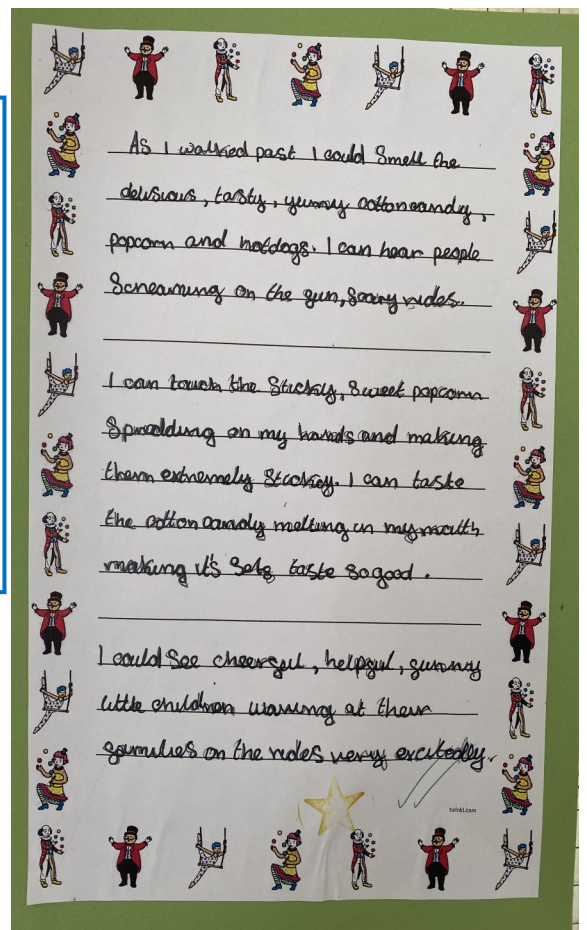 As I walked past I could Smell the
delisious, tasty, yummy cottoncandy,
popcorn and hotdogs. I can hear people
Screaming on the fun, Scary rides.
I can touch the Stickey, Sweet popcorn
Spreadding on my hands and making
them extremely Stickey. I can taste
the cotton candy melting in my mouth
making it's taste so good.
I could See cheerful, helpful, funny
little children waving at their
families on the rides very excitedly.
twinkl.com